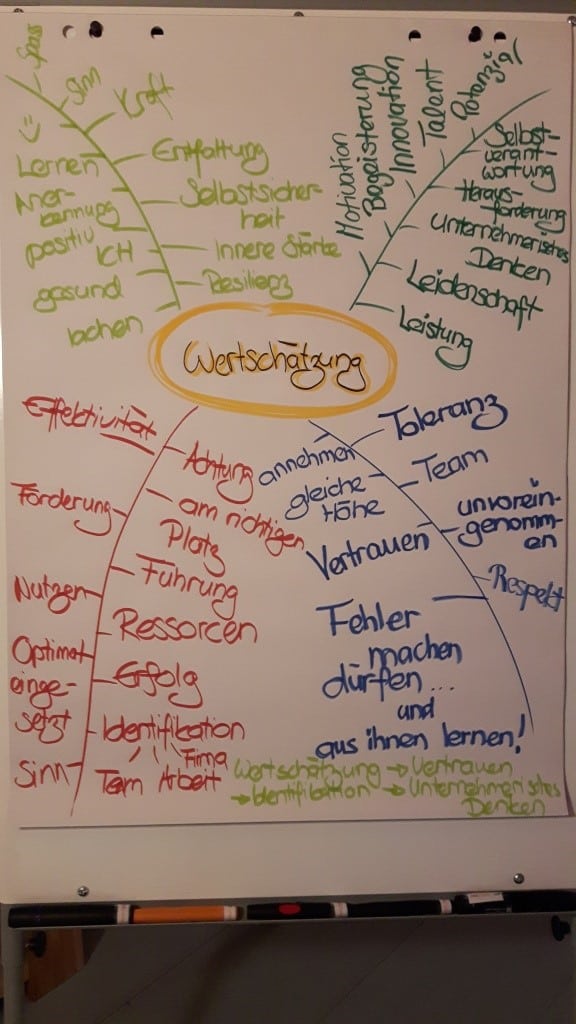 Spass
Sinn
Kraft
Lernen
Entfaltung
Aner-
kennung
Selbstsicher-
heit
positiv
ICH
Innere Stärke
gesund
Resilienz
lachen
Motivation
Begeisterung
Innovation
Talent
Potenzial
Selbst-
verant-
wortung
Heraus-
forderung
Unternehmerisches
Denken
Leidenschaft
Leistung
Wertschätzung
Effektivität
Achtung
Förderung
am richtigen
Platz
Führung
Nutzen
Ressorcen
Optimal
einge-
setzt
Erfolg
Identifikation
Team Arbeit Firma
Sinn
Toleranz
annehmen
Team
gleiche
Höhe
unvorein-
genomm-
en
Vertrauen
Respekt
Fehler
machen
dürfen...
und
aus ihnen lernen!
Wertschätzung → Vertrauen
→ Identifikation → Unternehmerisches
Denken